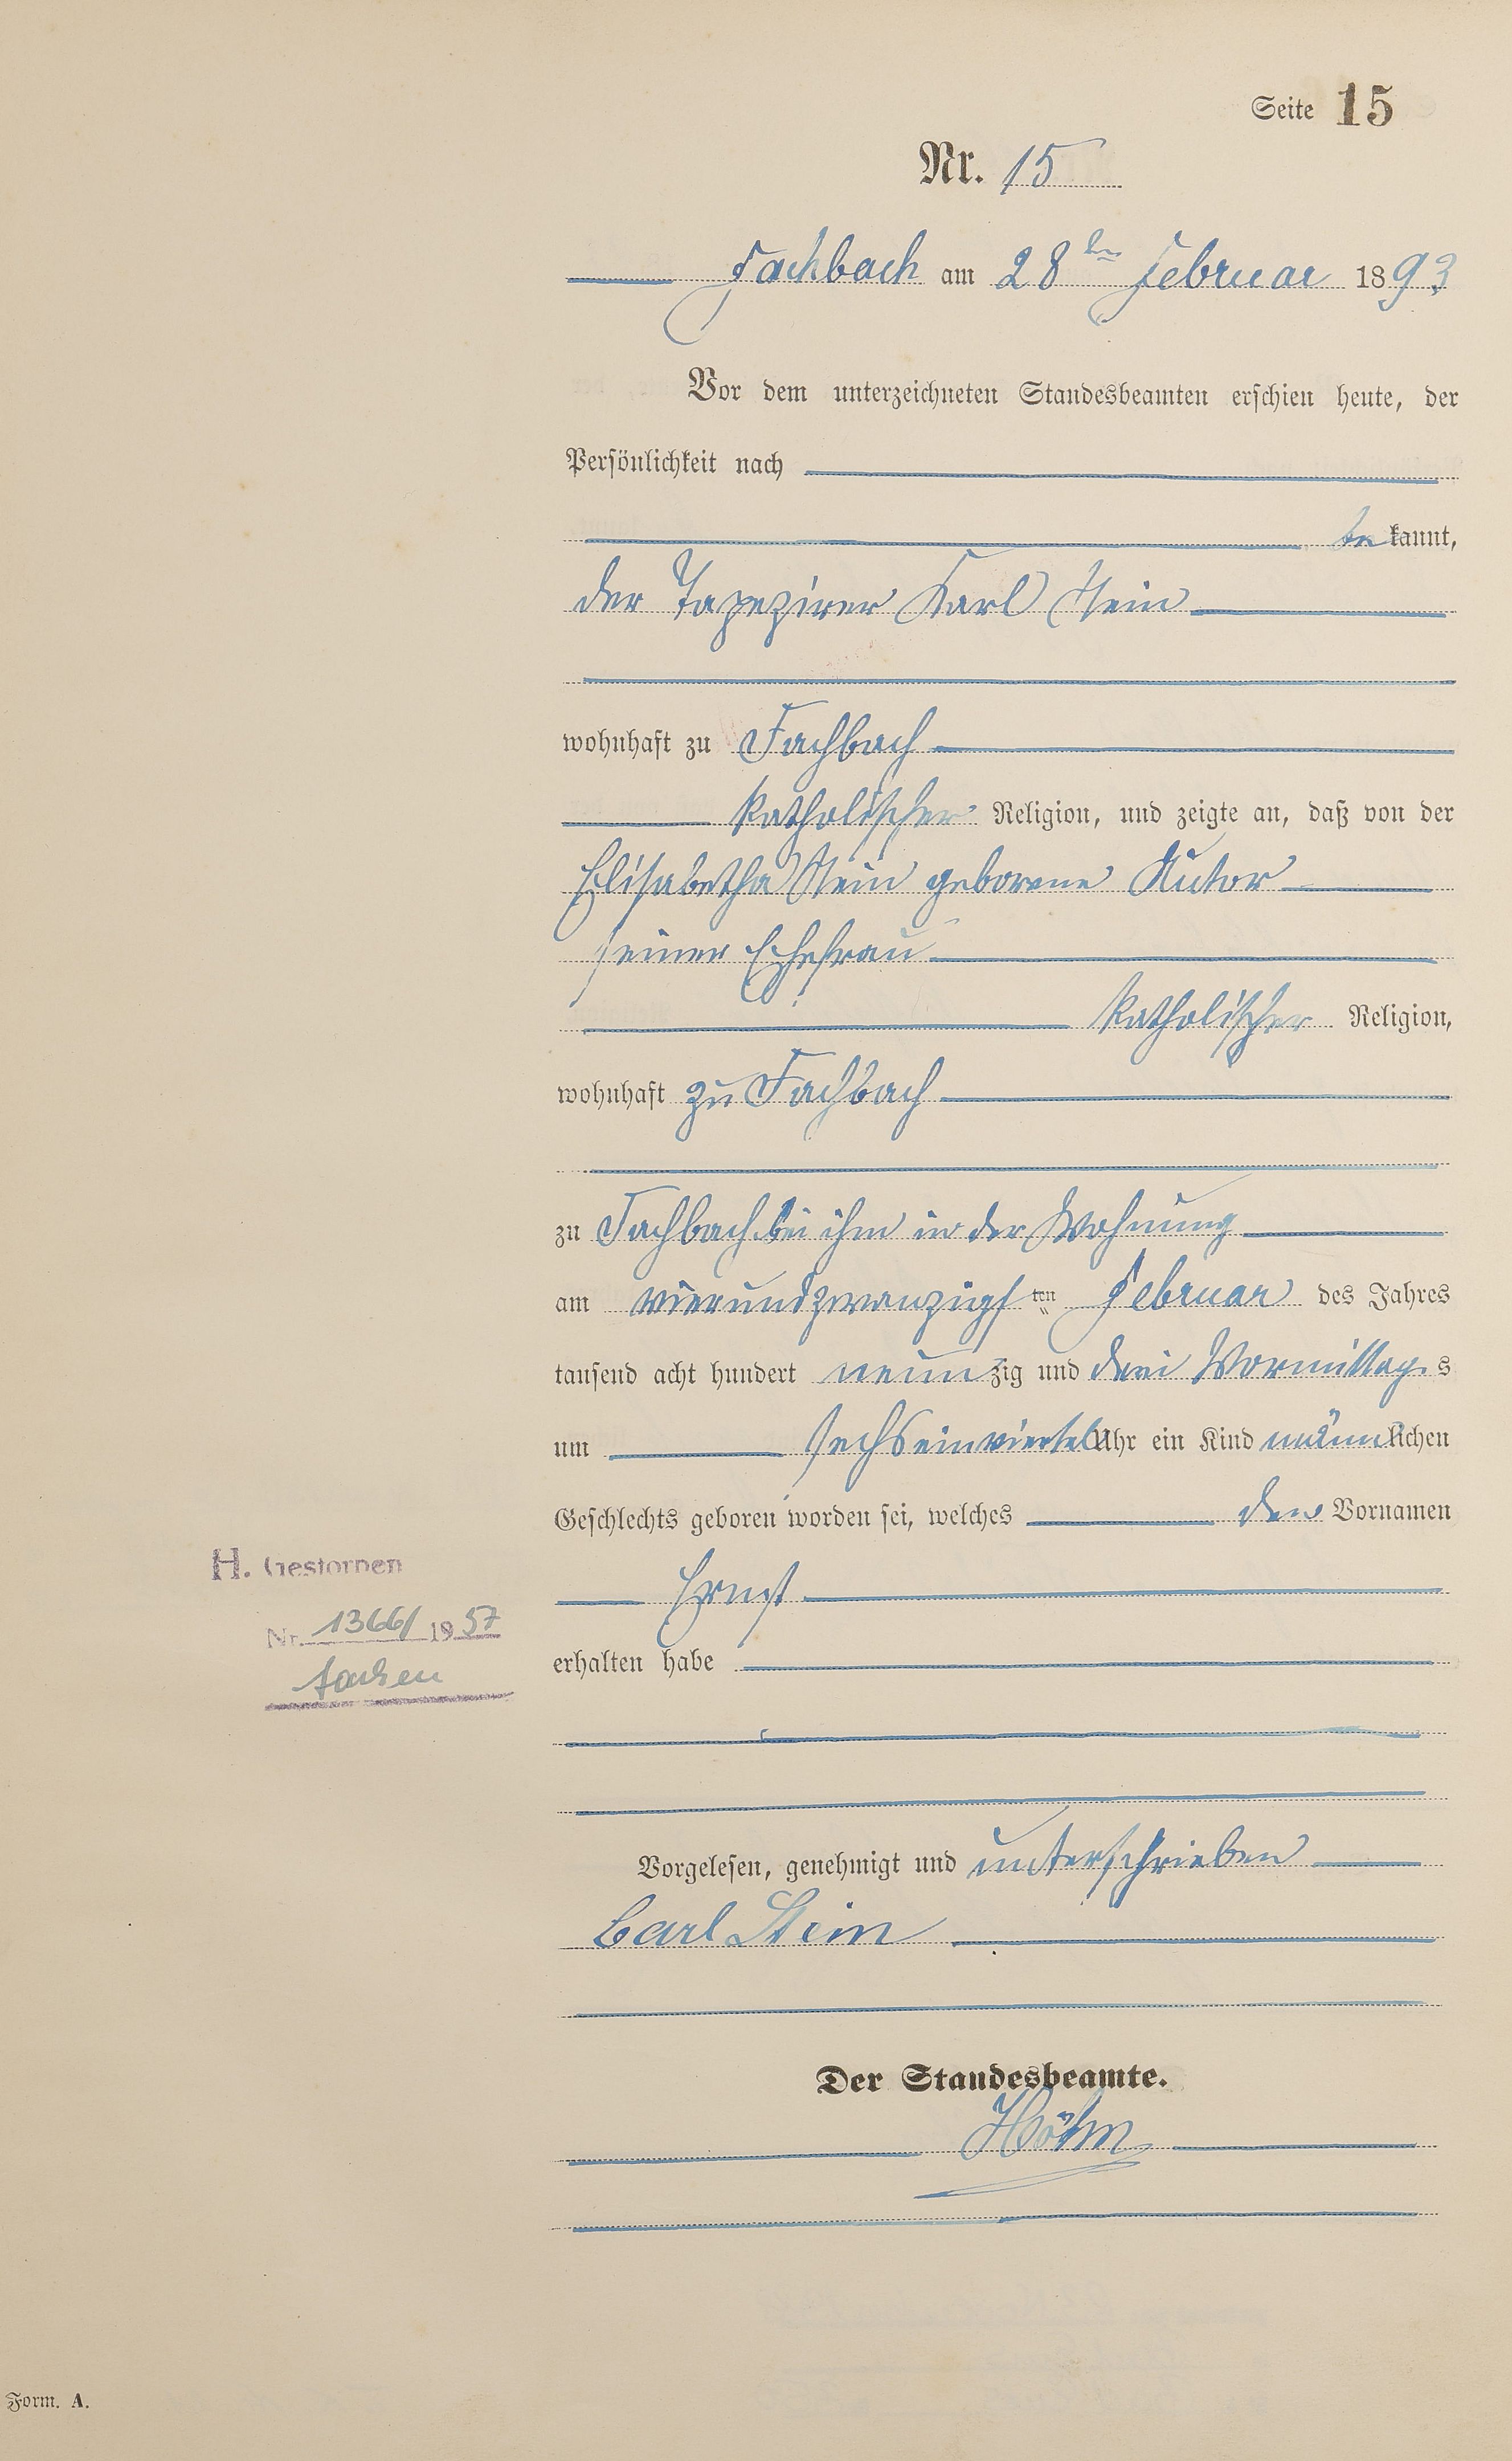 Seite 15
Nr. 15
Fachbach am 28ten Februar 1893
Vor dem unterzeichneten Standesbeamten erschien heute, der
Persönlichkeit nach
bekannt,
der Tapezirer Karl Stein
wohnhaft zu Fachbach
katholischer Religion, und zeigte an, daß von der
Elisabetha Stein geborene Sutor
seiner Ehefrau
katholischer Religion,
wohnhaft zu Fachbach
zu Fachbach bei ihm in der Wohnung
am vierundzwanzigsten Februar des Jahres
tausend acht hundert neunzig und drei Vormittags
um sechseinviertel Uhr ein Kind männlichen
Geschlechts geboren worden sei, welches den Vornamen
H. Gestorben
Ernst
Nr. 1366/1957
erhalten habe
Aachen
Vorgelesen, genehmigt und unterschrieben
Carl Stein
Der Standesbeamte.
Höhn
Form. A.